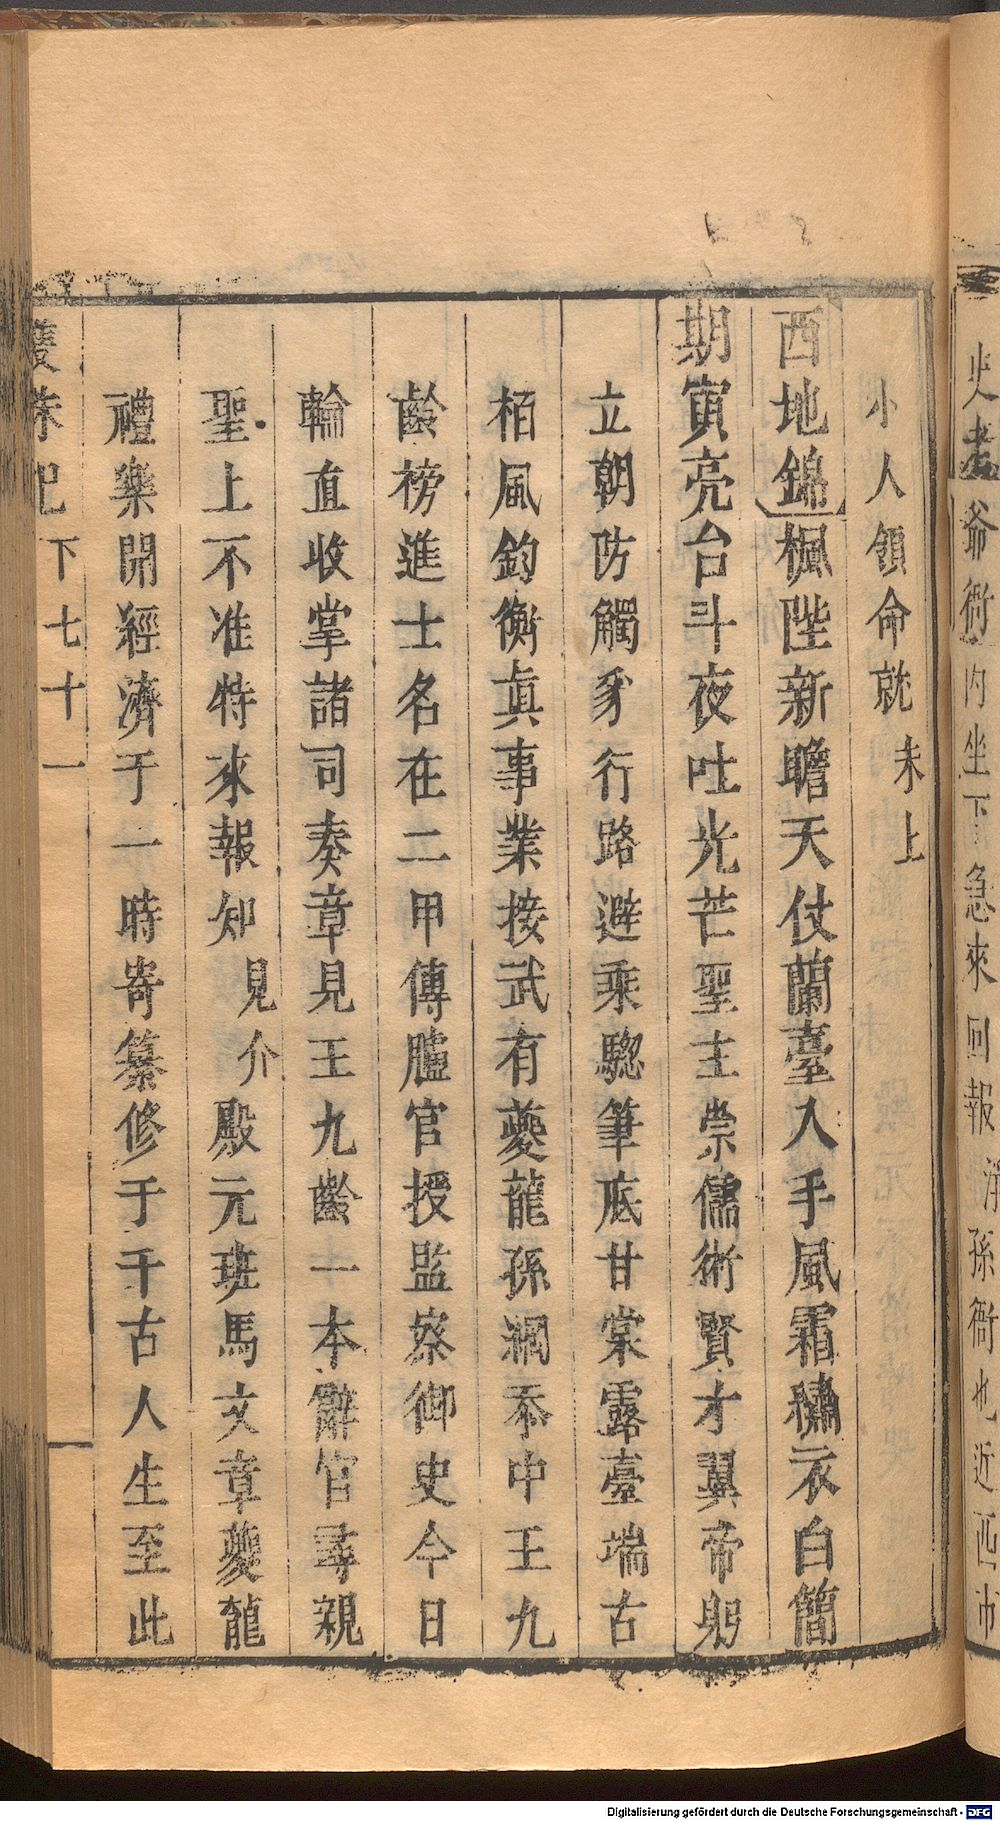 史老爺衙內坐下急來回報淨孫衙也近西市
小人領命就未上
西地錦楓陛新瞻天仗蘭臺入手風霜繡衣白簡
期寅亮台斗夜吐光芒聖主崇儒術賢才翼帝躬
立朝防觸豸行路避乘驄筆底甘棠露臺端古
栢風鈞衡眞事業接武有夔龍孫澗忝中王九
齡榜進士名在二甲傳臚官授監察御史今日
輪直收掌諸司奏章見王九齡一本辭官尋親
聖上不准特來報知見介殿元班馬文章夔龍
禮樂開經濟于一時寄纂修于千古人生至此
雙珠記 下 七十一
Digitalisierung gefördert durch die Deutsche Forschungsgemeinschaft - DFG